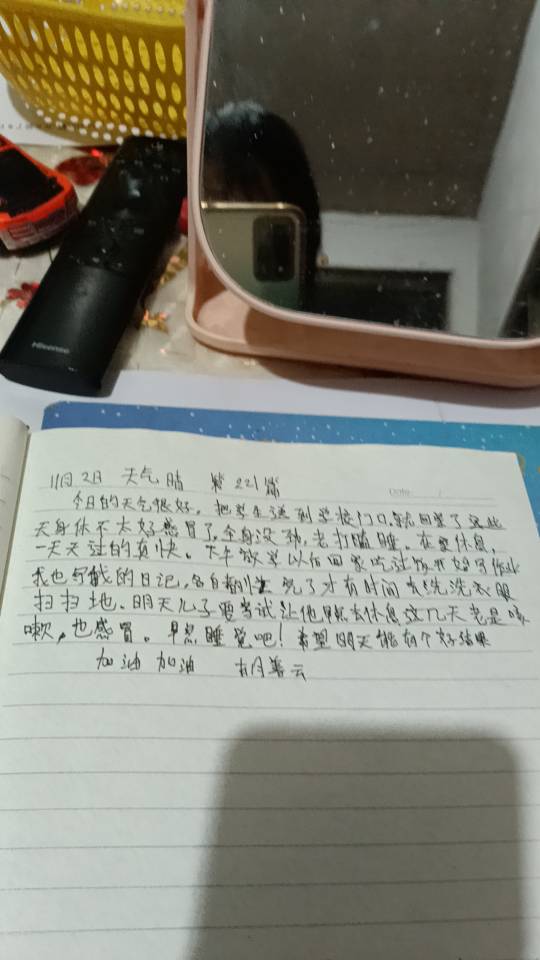 Hisense
11月2日 天气晴 第221篇
Date: /
今日的天气很好，把学生送到学校门口就回登了这些
天身体不太好感冒了，全身没劲，老打瞌睡。在家休息，
一天天过的真快。下午放学以后回家吃过饭开始写作业
我也写我的日记，各自忙完了才有时间去洗洗衣服
扫扫地。明天儿子要考试让他早点去休息这几天老是咳
嗽，也感冒。早点睡觉吧！希望明天能有个好结果
加油 加油 胡善云